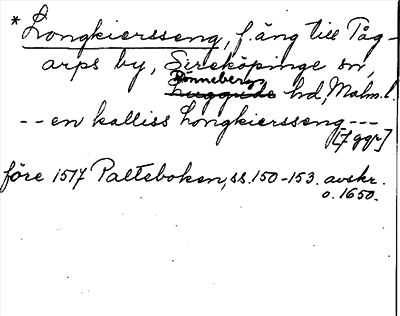 * Longkiersseng, f. äng till Tåg-
arps by, Sireköpinge sn,
Rönnebergs
Luggude hd, Malm.l.
-- en kalliss Longkiersseng ---
[7 ggr]
före 1517 Palteboken, ss. 150-153. avskr.
o. 1650.